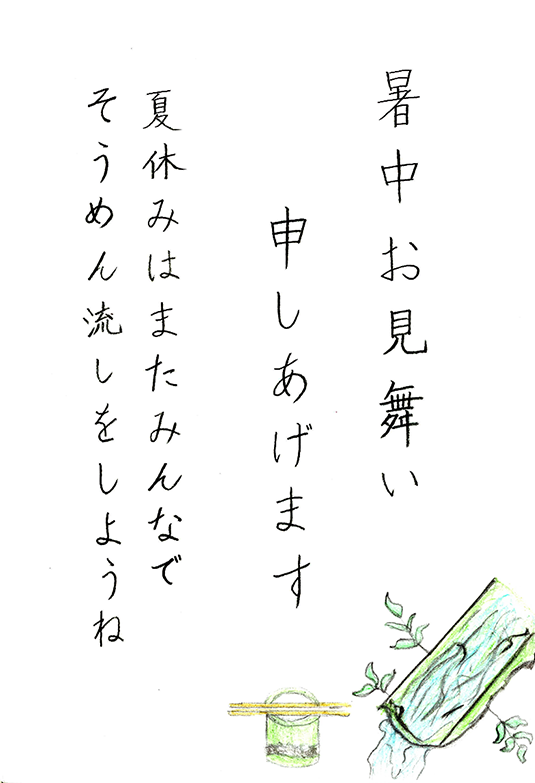 暑中お見舞い
申しあげます
夏休みはまたみんなで
そうめん流しをしようね